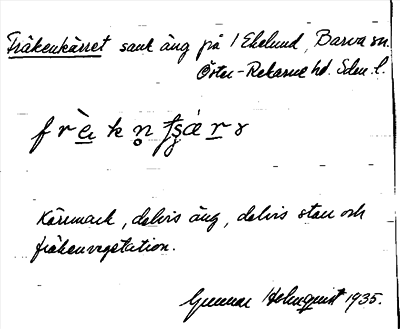 Fräkenkärret sank äng på 1 Ekelund, Barva sn.
Öster-Rekarne hd. Södm. l.
Kärrmark, delvis äng, delvis starr och
fräkenvegetation.
Gunnar Holmquist 1935.